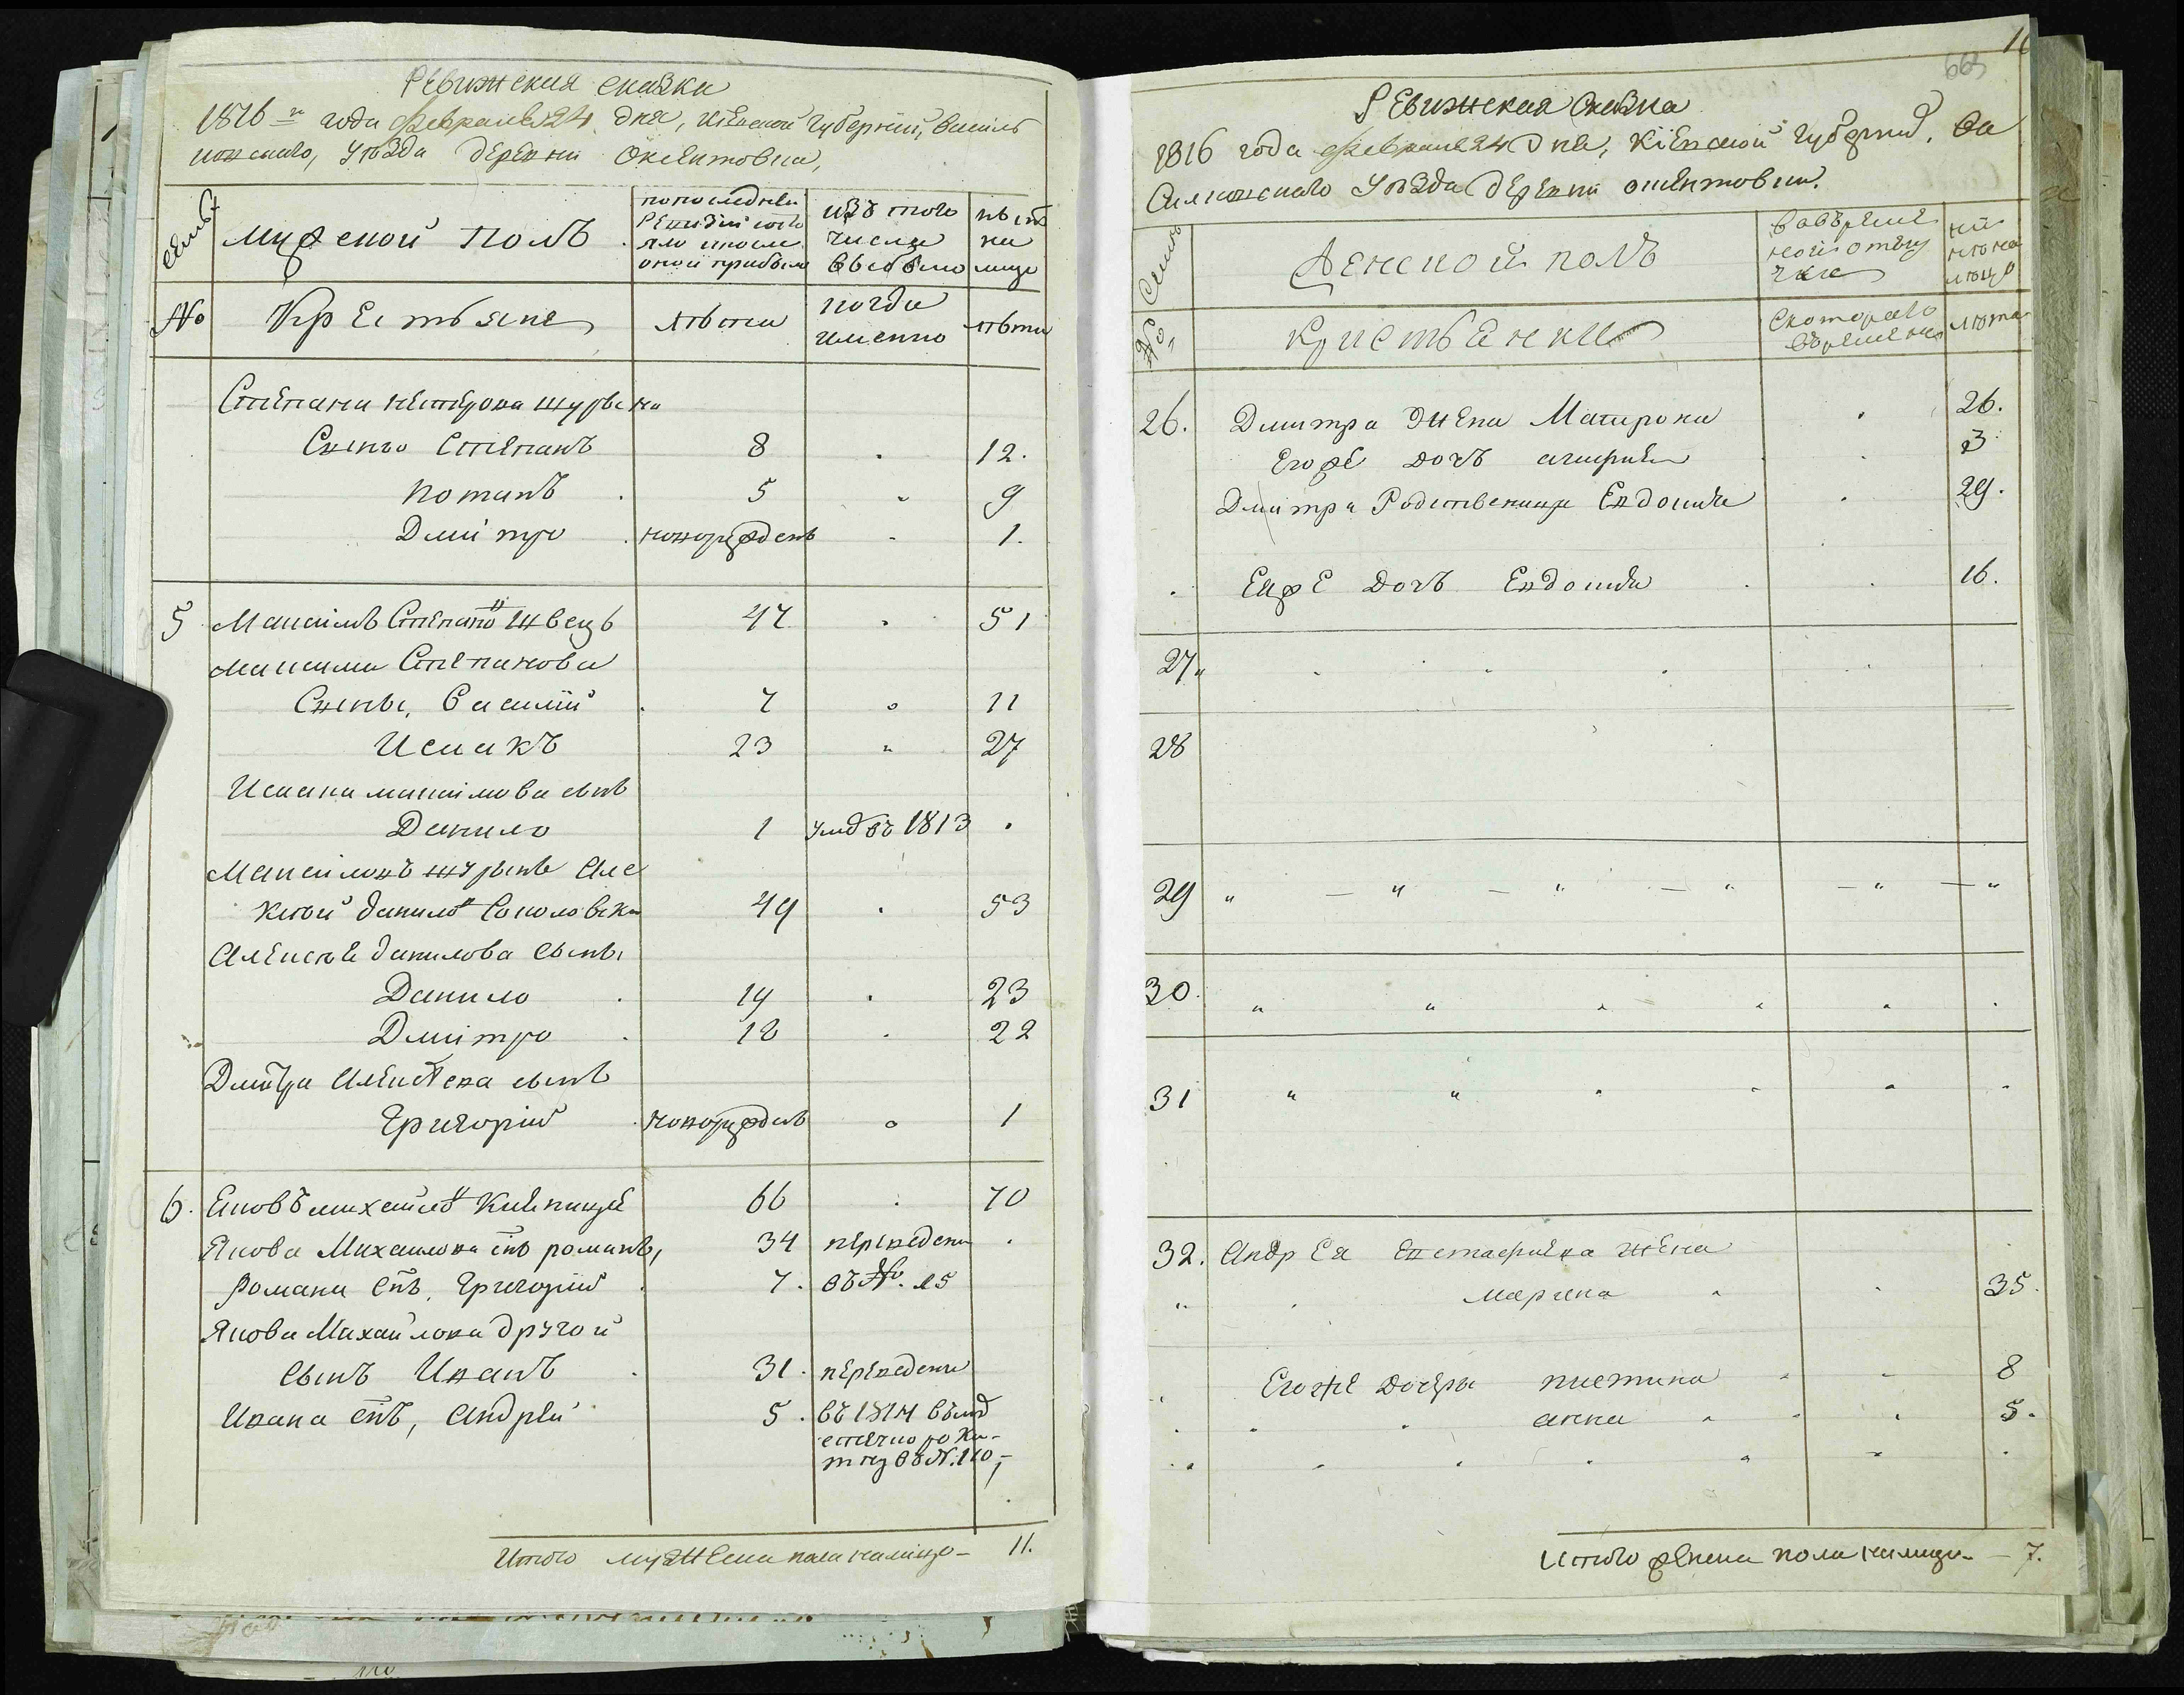 Ревижская сказка
1816 го года февраля 24 дня, Кіевской Губерніи, Василь
ковскаго, Уѣзда деревни Оксентовки,
семьи
Мужеской Полъ
по последней Ревизіи состояло и после оной прибыло
изъ того числа выбыло
ныне на лицо
№
Крестьяне
лѣта
когда именно
лѣта
Степана Нестерова шурына
Сынъ Степанъ 8 12.
Потапъ 5 9
Дмитро новорожденъ 1.
5 Максимъ Степано въ Швецъ 47 51
Максима Степанова
Сыны, Василій 7 11
Исаакъ 23 27
Исаака Максимова сынъ
Данило 1 умд въ 1813
Максимовъ шурынъ Але
ксѣй данило въ Соколовски 49 53
Алексѣя данилова сыны
Данило 19 23
Дмитро 18 22
Дмитра Алексѣева сынъ
Григорій новорожденъ 1
6. Яковъ михайло въ 66 70
Якова Михайлова снъ романъ, 34 переведены
Романа снъ, Григорій 7. въ №. 15
Якова Михайлова другой
сынъ Иванъ 31. переведены
Ивана снъ, Андрей 5. въ 1814
въ №. 110,
Итого мужеска пола налицо — 11.
66
Ревижская Сказка
1816 года февраля 24 Дня, Кіевской губерніи, Ва
силковскаго Уѣзда деревни оксентовки.
Семьи
Женской полъ
во временной отлучке
ныне на лицо
№
Крестьянки
С котораго времени
лѣта
26. Дмитра Жена Матрона 26.
Егоже дочъ 3
Дмитра Родственница Евдокия 29.
Еяже дочъ Евдокия 16.
27
28
29 " — " — " — " — " — "
30. " " " " " "
31 " " " " " "
32. Андрея Евстафиева жена
" Марина 35.
Егоже дочеры Иустина 8
анна 5.
Итого женска пола налицо — 7.